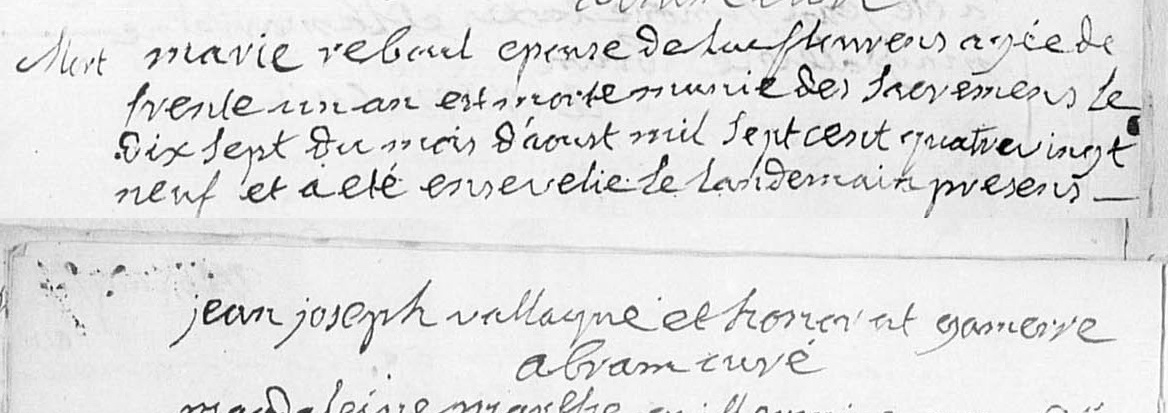 Mort marie reboul epouse de Luc flourens agée de
trente un an est morte munie des sacremens le
dix sept du mois d'aoust mil sept cent quatrevingt
neuf et a eté ensevelie le landemain presens
jean joseph vallagne et honorat
abram curé
magdeleine marthe